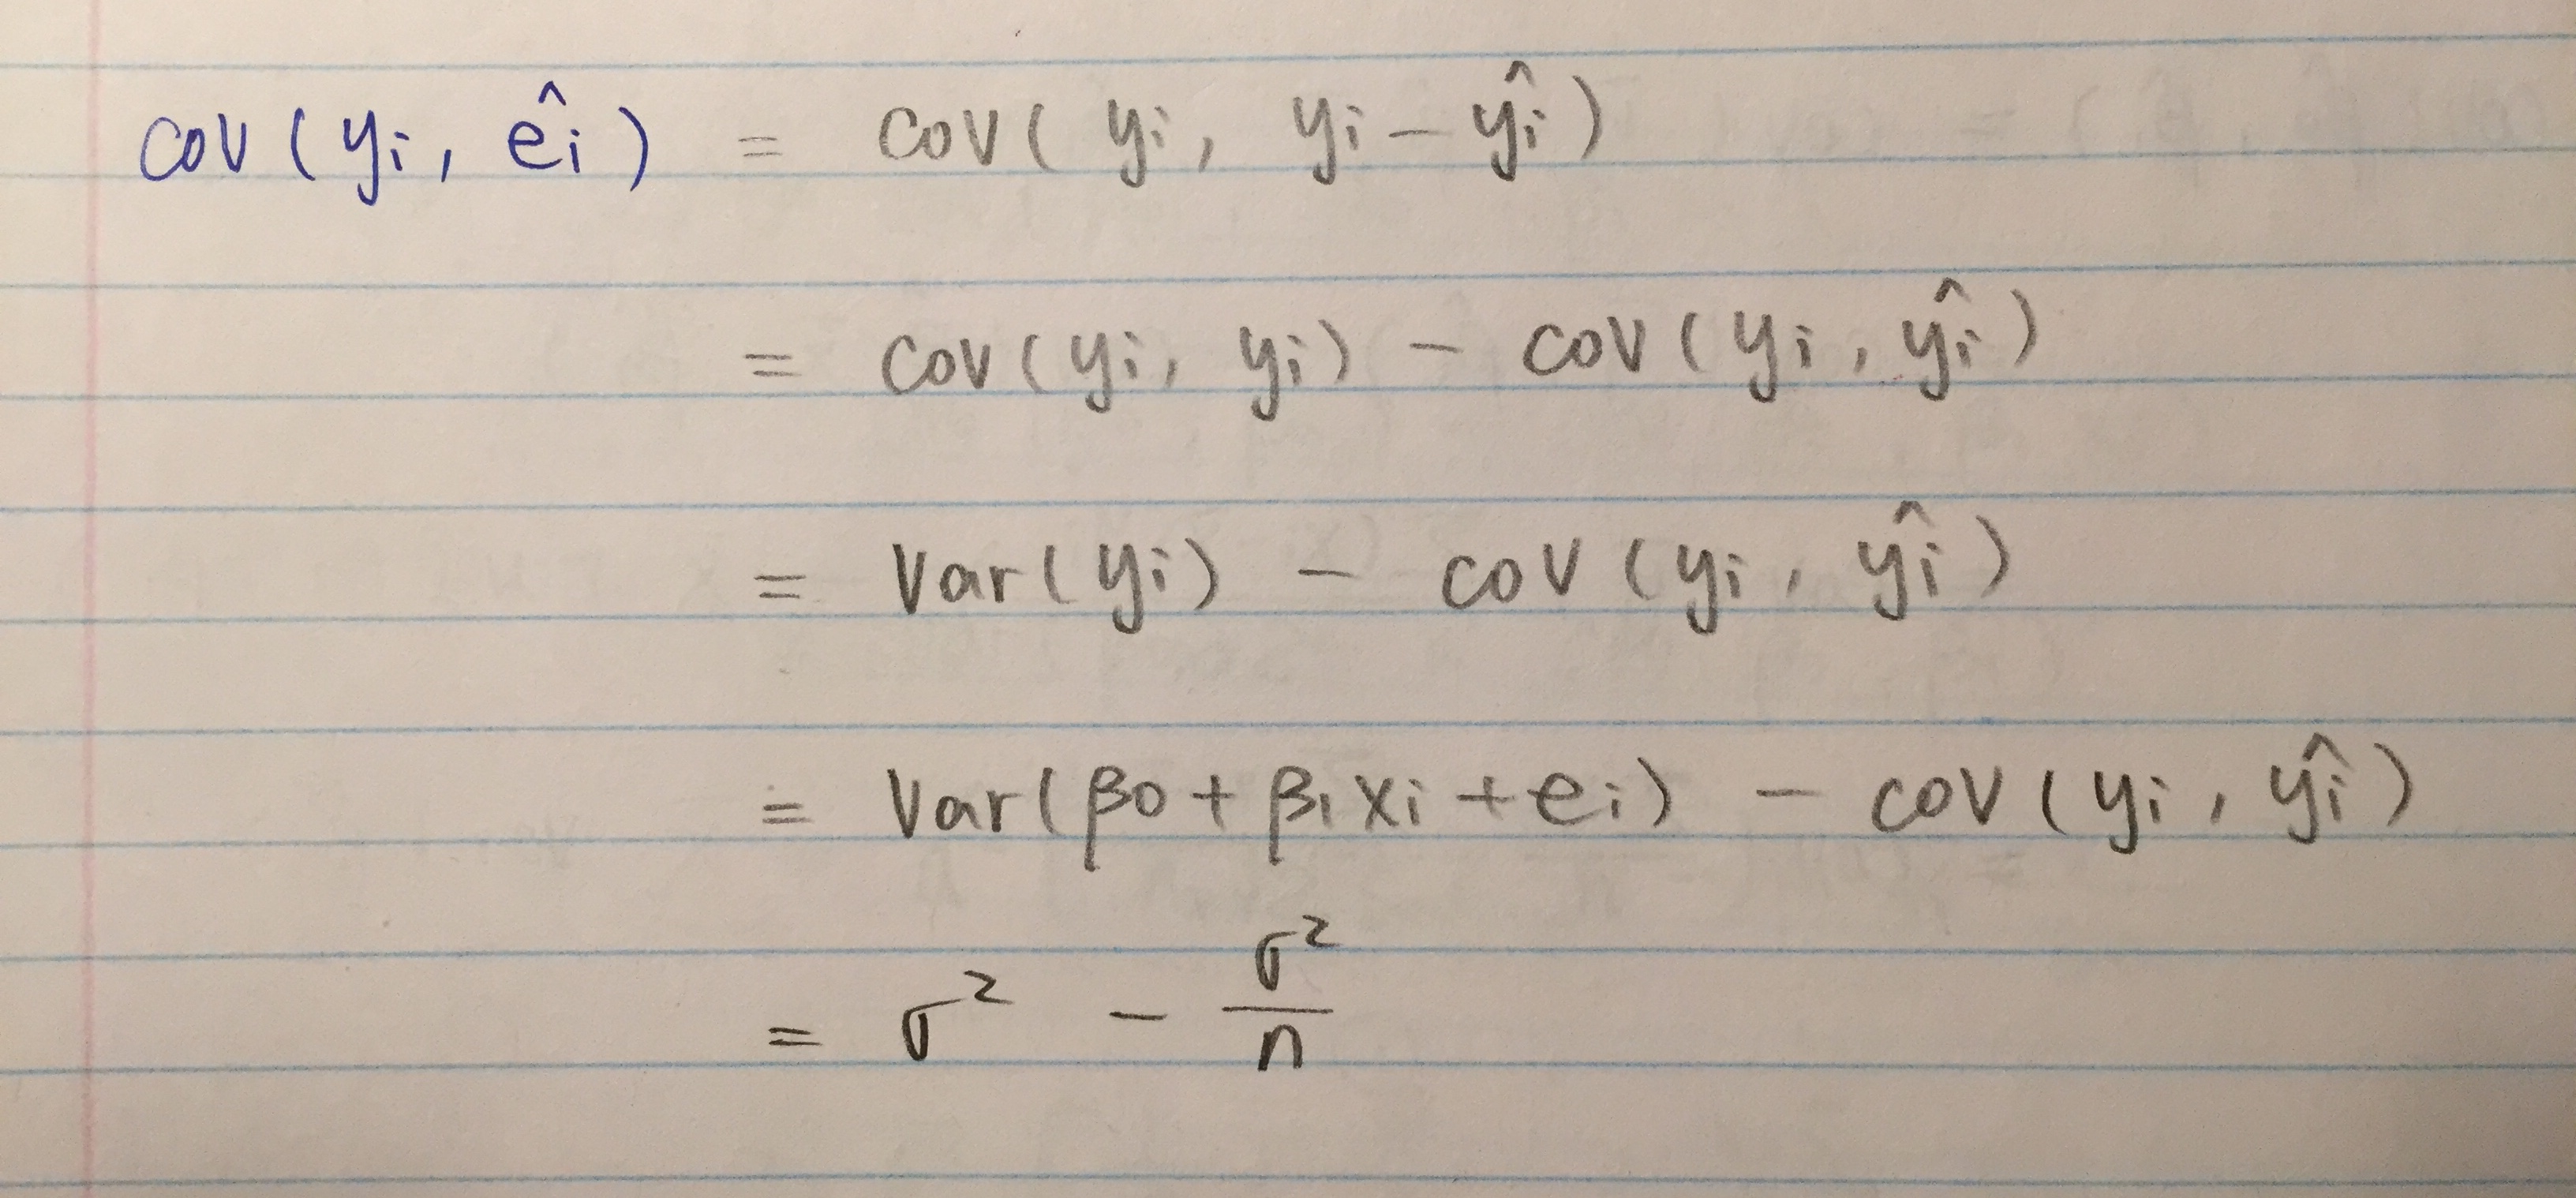 cov(yi, êi) = cov(yi, yi − ŷi)
= cov(yi, yi) − cov(yi, ŷi)
= Var(yi) − cov(yi, ŷi)
= Var(β0 + β1xi + ei) − cov(yi, ŷi)
= σ² − σ²/n